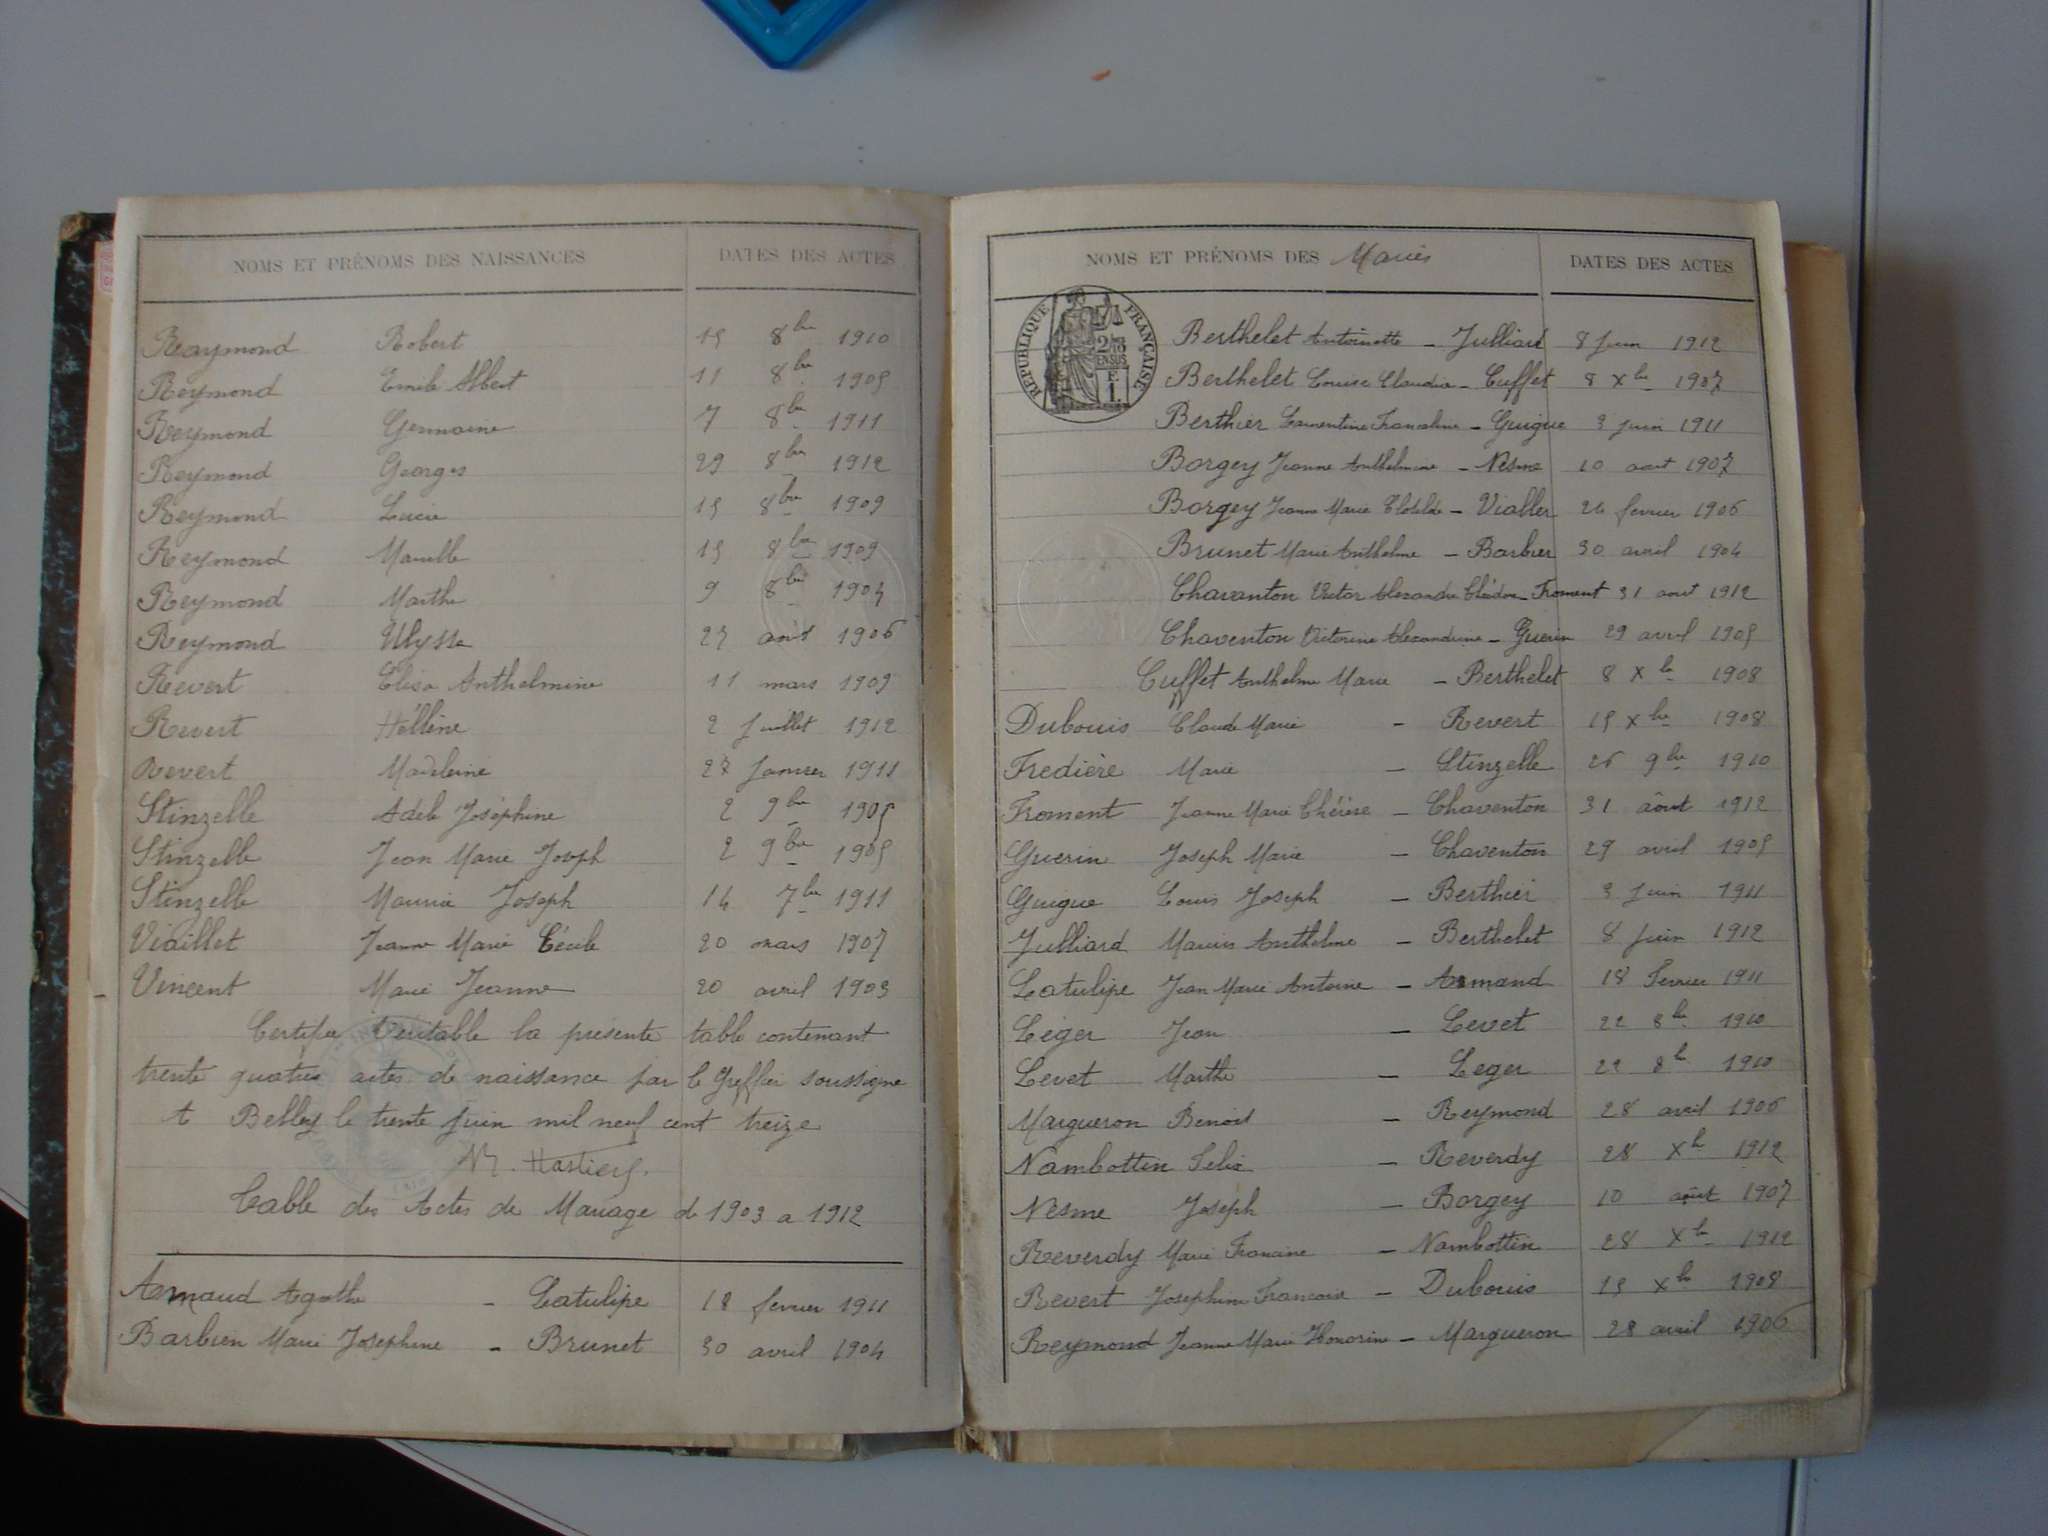 NOMS ET PRÉNOMS DES NAISSANCES DATES DES ACTES
Raymond Robert 15 8bre 1910
Reymond Emile Albert 11 8bre 1905
Reymond Germaine 7 8bre 1911
Reymond Georges 29 8bre 1912
Reymond Lucie 15 8bre 1909
Reymond Marcelle 15 8bre 1909
Reymond Marthe 9 8bre 1904
Reymond Ulysse 27 août 1906
Revert Elisa Anthelmine 11 mars 1909
Revert Héllène 2 Juillet 1912
Revert Madeleine 27 Janvier 1911
Stinzelle Adele Joséphine 2 9bre 1905
Stinzelle Jean Marie Joseph 2 9bre 1905
Stinzelle Maurice Joseph 14 7bre 1911
Viaillet Jeanne Marie Cécile 20 mars 1907
Vincent Marie Jeanne 20 avril 1903
Certifie Veritable la presente table contenant
trente quatre actes de naissance par le Greffier soussigne
A Belley le trente juin mil neuf cent treize
Table des Actes de Mariage de 1903 a 1912
Armand Agathe - Latulipe 18 fevrier 1911
Barbier Marie Josephine - Brunet 30 avril 1904
NOMS ET PRÉNOMS DES Mariés DATES DES ACTES
RÉPUBLIQUE FRANÇAISE
Berthelet Antoinette - Julliard 8 Juin 1912
Berthelet Louise Claudia - Cuffet 8 Xbre 1907
Berthier Franceline - Guigue 3 juin 1911
Borgey Jeanne Anthelmine - Nesme 10 aout 1907
Borgey Jeanne Marie Clotilde - Viallet 24 fevrier 1906
Brunet Marie Anthelme - Barbier 30 avril 1904
Chavanton Victor Alexandre - Froment 31 aout 1912
Chaventon Victorine Alexandrine - Guerin 29 avril 1905
Cuffet Anthelme Marie - Berthelet 8 Xbre 1908
Dubouis Claude Marie - Revert 15 Xbre 1908
Fredière Marie - Stinzelle 26 9bre 1910
Froment Jeanne Marie Thérèse - Chaventon 31 âout 1912
Guerin Joseph Marie - Chaventon 29 avril 1905
Guigue Louis Joseph - Berthier 3 Juin 1911
Julliard Marius Anthelme - Berthelet 8 Juin 1912
Latulipe Jean Marie Antoine - Armand 18 Fevrier 1911
Leger Jean - Levet 22 8bre 1910
Levet Marthe - Leger 22 8bre 1910
Margueron Benoit - Reymond 28 avril 1906
Nambottin Felix - Reverdy 28 Xbre 1912
Nesme Joseph - Borgey 10 août 1907
Reverdy Marie Francine - Nambottin 28 Xbre 1912
Revert Josephine Francoise - Dubouis 15 Xbre 1908
Reymond Jeanne Marie Honorine - Margueron 28 avril 1906